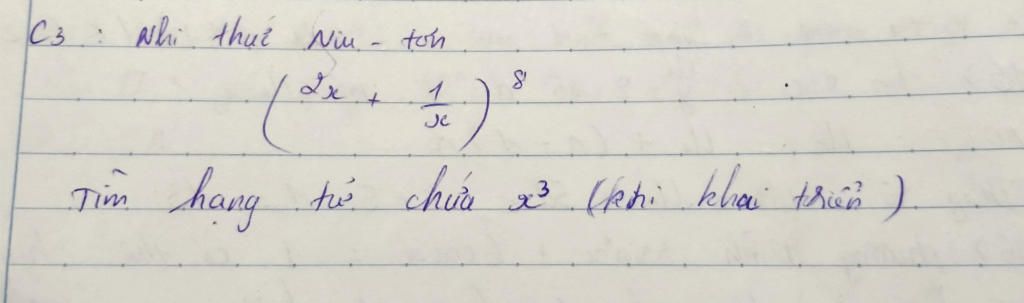 C3 : Nhi thức Niu - tơn
(2x + 1/x)^8
Tìm hạng tử chứa x³ (khi khai triển)